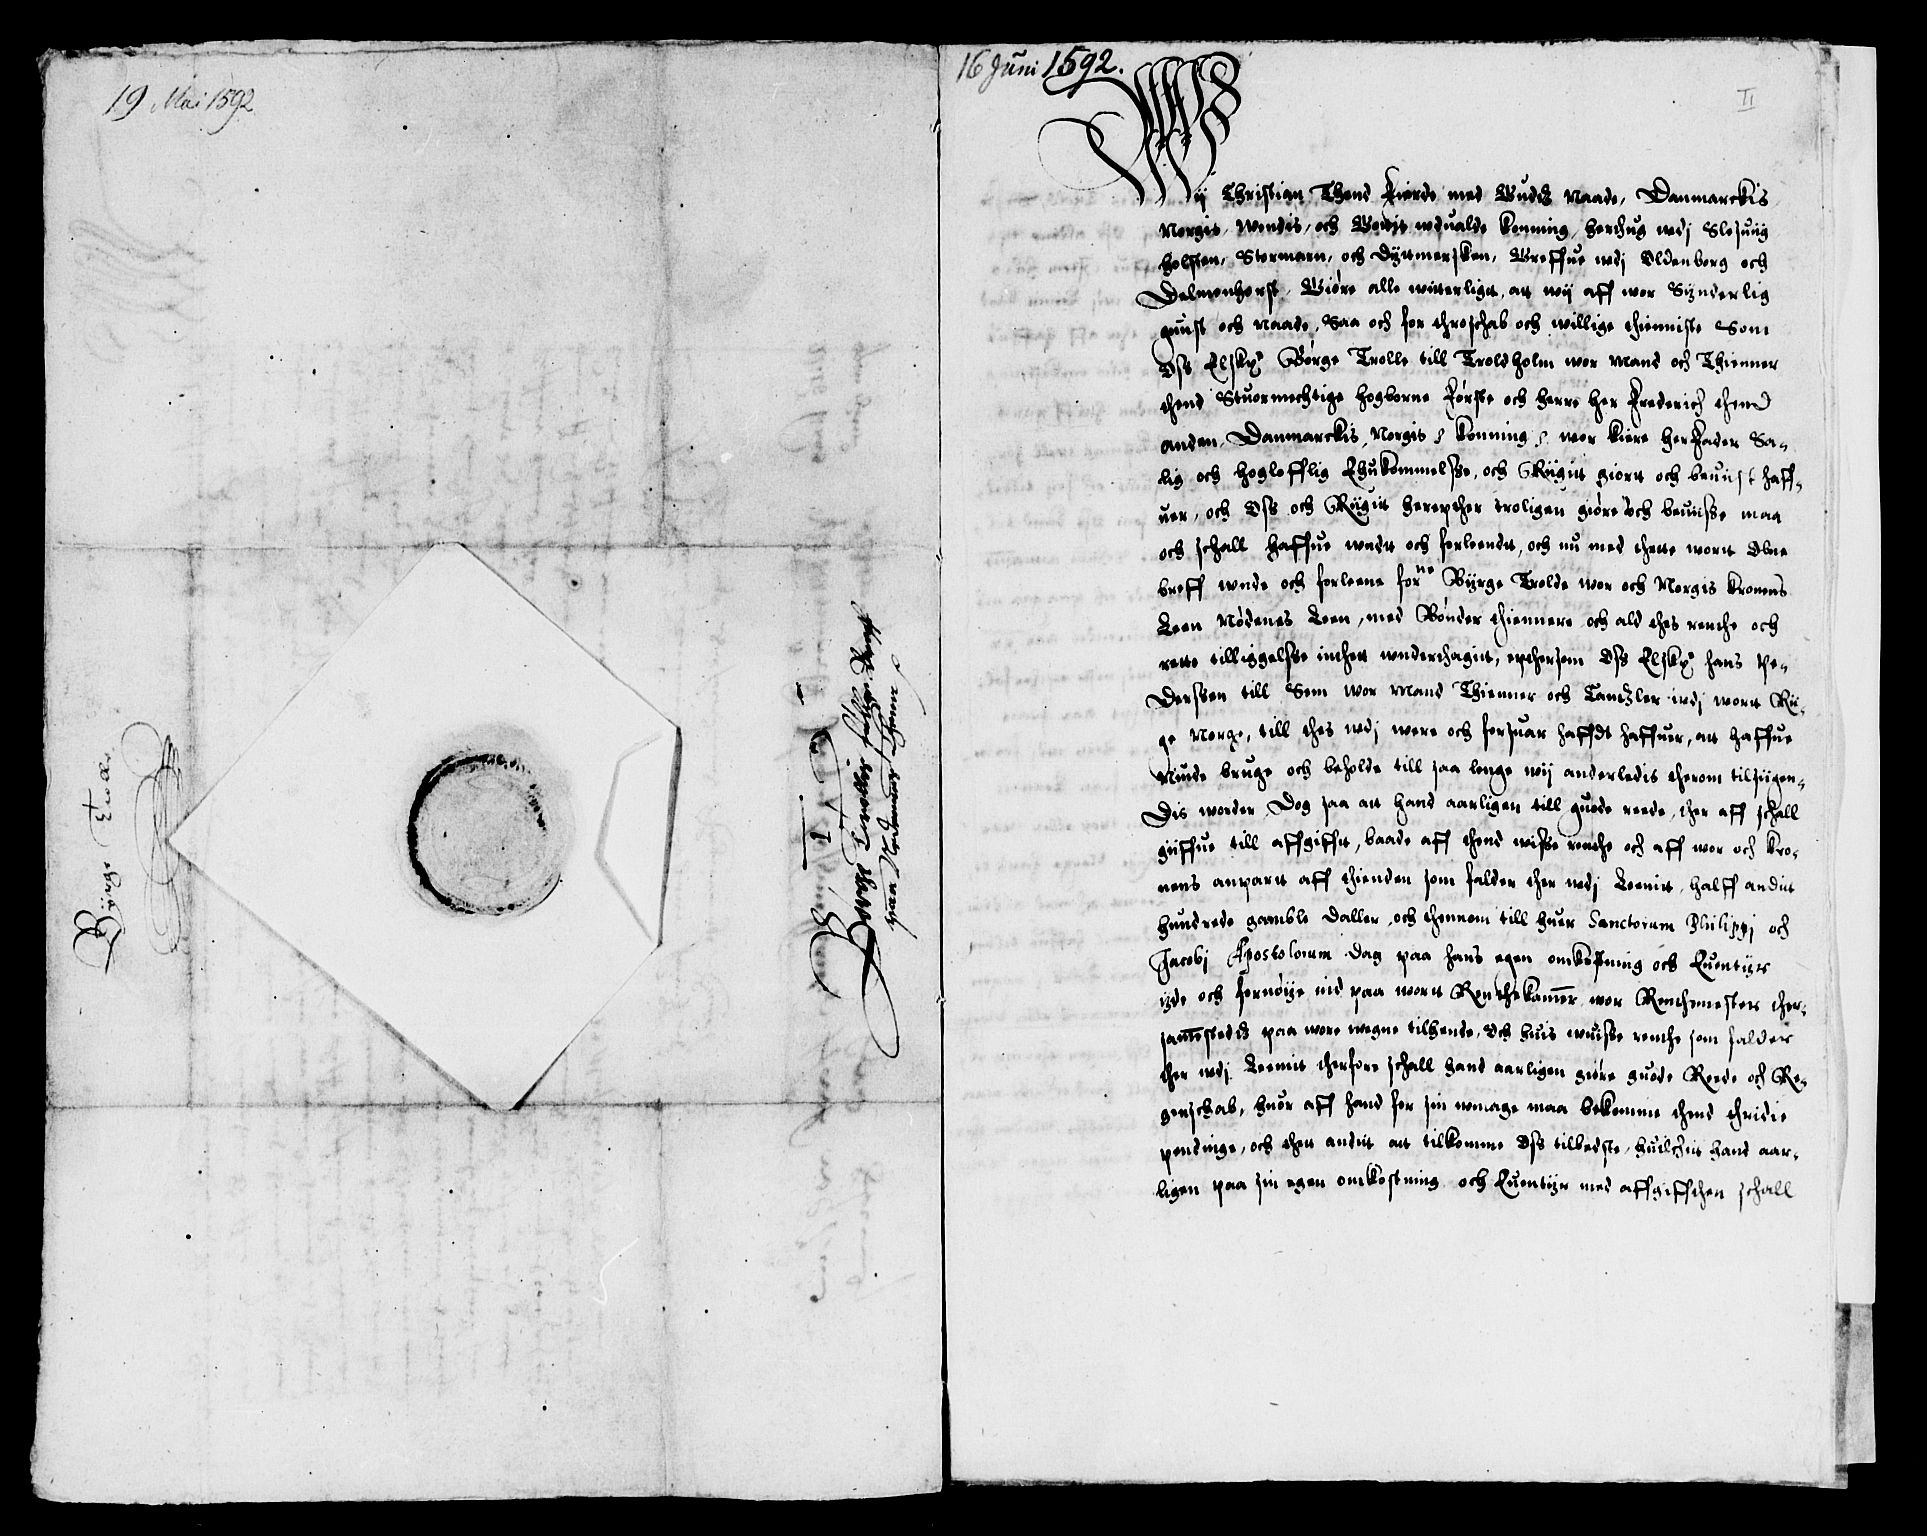 19 Mai 1592
Børge
Børge Trollis
paa Nedennes Lhenn
16 Juni 1592.
II
Wij Christian Thend Fierde med Gudz Naade, Danmarckis
Norgis, Wendis, och Gottis wdualde Konning, hertug wdj Slesuiig
holsten, Stormarn, och Dytmersken, Greffue wdj Oldenborg och
Delmenhorst, Giøre alle witterligt, att wij aff wor Synderlig
gunst och naade, Saa och for throschab och willige thienniste Som
Oss Elskr. Børge Trolle till Troldholm wor Mand och Thienner
thend Stuormechtige høgborne Første och herre Her Frederich thend
anden, Danmarckis, Norgis Konning wor kiere HerFader Sa-
lig och hogloffllig Ihukommelsse, och Riigit giort och beuist haff-
uer, och Oss och Riigit herepther troligen giøre och beuisse maa
och schall Haffue wndt och forleendt, och nu med thette wort Obne
breff wnde och forleene forne Byrge Trolde wor och Norgis Kronens
Leen Nødenes Leen, med Bønder thiennere och ald thes renthe och
rette tilliggelsse inthet wnderthagit, epthersom Oss Elskr. Hans Pe-
derssen till Sem wor Mand Thienner och Cantzler wdj wort Rii-
ge Norge, till thes wdj were och forsuar hafft haffuer, att haffue
Niude bruge och beholde till saa lenge wij anderledis therom tilsiigen-
dis worder, Dog saa att hand aarligen till guode reede, ther aff schall
giiffue till affgifft, baade aff thend wisse renthe och aff wor och Kro-
nens anpart aff thienden som falder ther wdj Leenit, halff andit
hundrede gamble daller, och thennom till huer Sanctorum Philippj och
Jacobj Apostolorum dag paa hans egen omkostning och Euentiyr
iyde och fornøiye ind paa wort Renthekamer wor Renthemester ther-
samestedz paa wore wegne tilhende, Och huis wuisse renthe som falder
ther wdj Leenit therfore schall hand aarligen giøre guode Reede och Re-
genschab, huor aff hand for sin wmage maa bekomme thend thridie
pendinge, och then andit att tilkomme Oss tilbedste, huilchit hand aar-
ligen paa sin egen omkostning och Euentiyr med affgifften schall